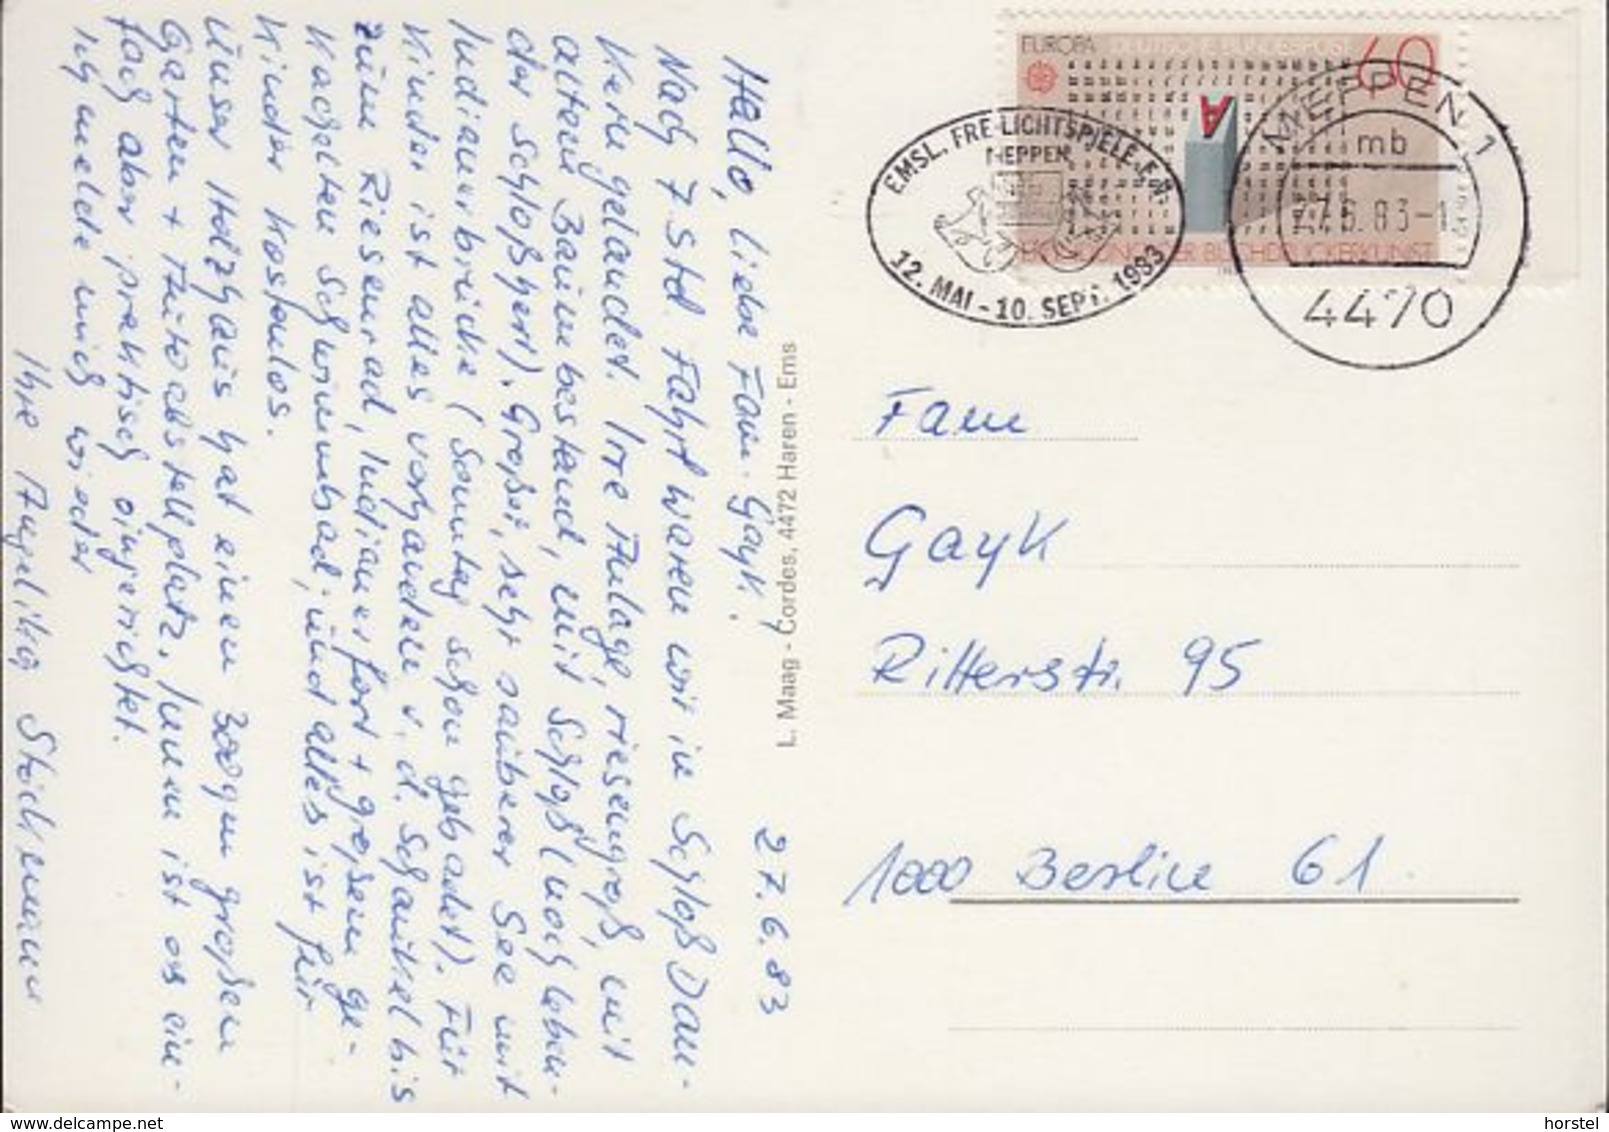 27.6.83
Hallo, liebe Fam. Gayk!
Nach 7 Std. Fahrt waren wir in Schloß Dan-
kern gelandet. Irre Anlage, riesengroß, mit
altem Baumbestand, mit Schloß (noch leben-
der Schloßherr). Großer, sehr sauberer See mit
Indianerbrücke (Sonntag schon gebadet). Für
Kinder ist alles vorhanden v. d. Schaukel bis
zum Riesenrad, Indianerfort + großem ge-
kachelten Schwimmbad, und alles ist für
Kinder kostenlos.
Unser Holzhaus hat einen 300 qm großen
Garten + Autoabstellplatz, innen ist es ein-
fach aber praktisch eingerichtet.
Ich melde mich wieder
Ihre Angelika Stöckmann
L. Maag - Cordes, 4472 Haren - Ems
EUROPA DEUTSCHE BUNDESPOST 60
A
ERFINDUNG DER BUCHDRUCKERKUNST
EMSL. FREILICHTSPIELE E.V.
MEPPEN
12. MAI - 10. SEPT. 1983
MEPPEN 1
mb
27.6.83-1
4470
Fam
Gayk
Ritterstr. 95
1000 Berlin 61
horstel delcampe.net